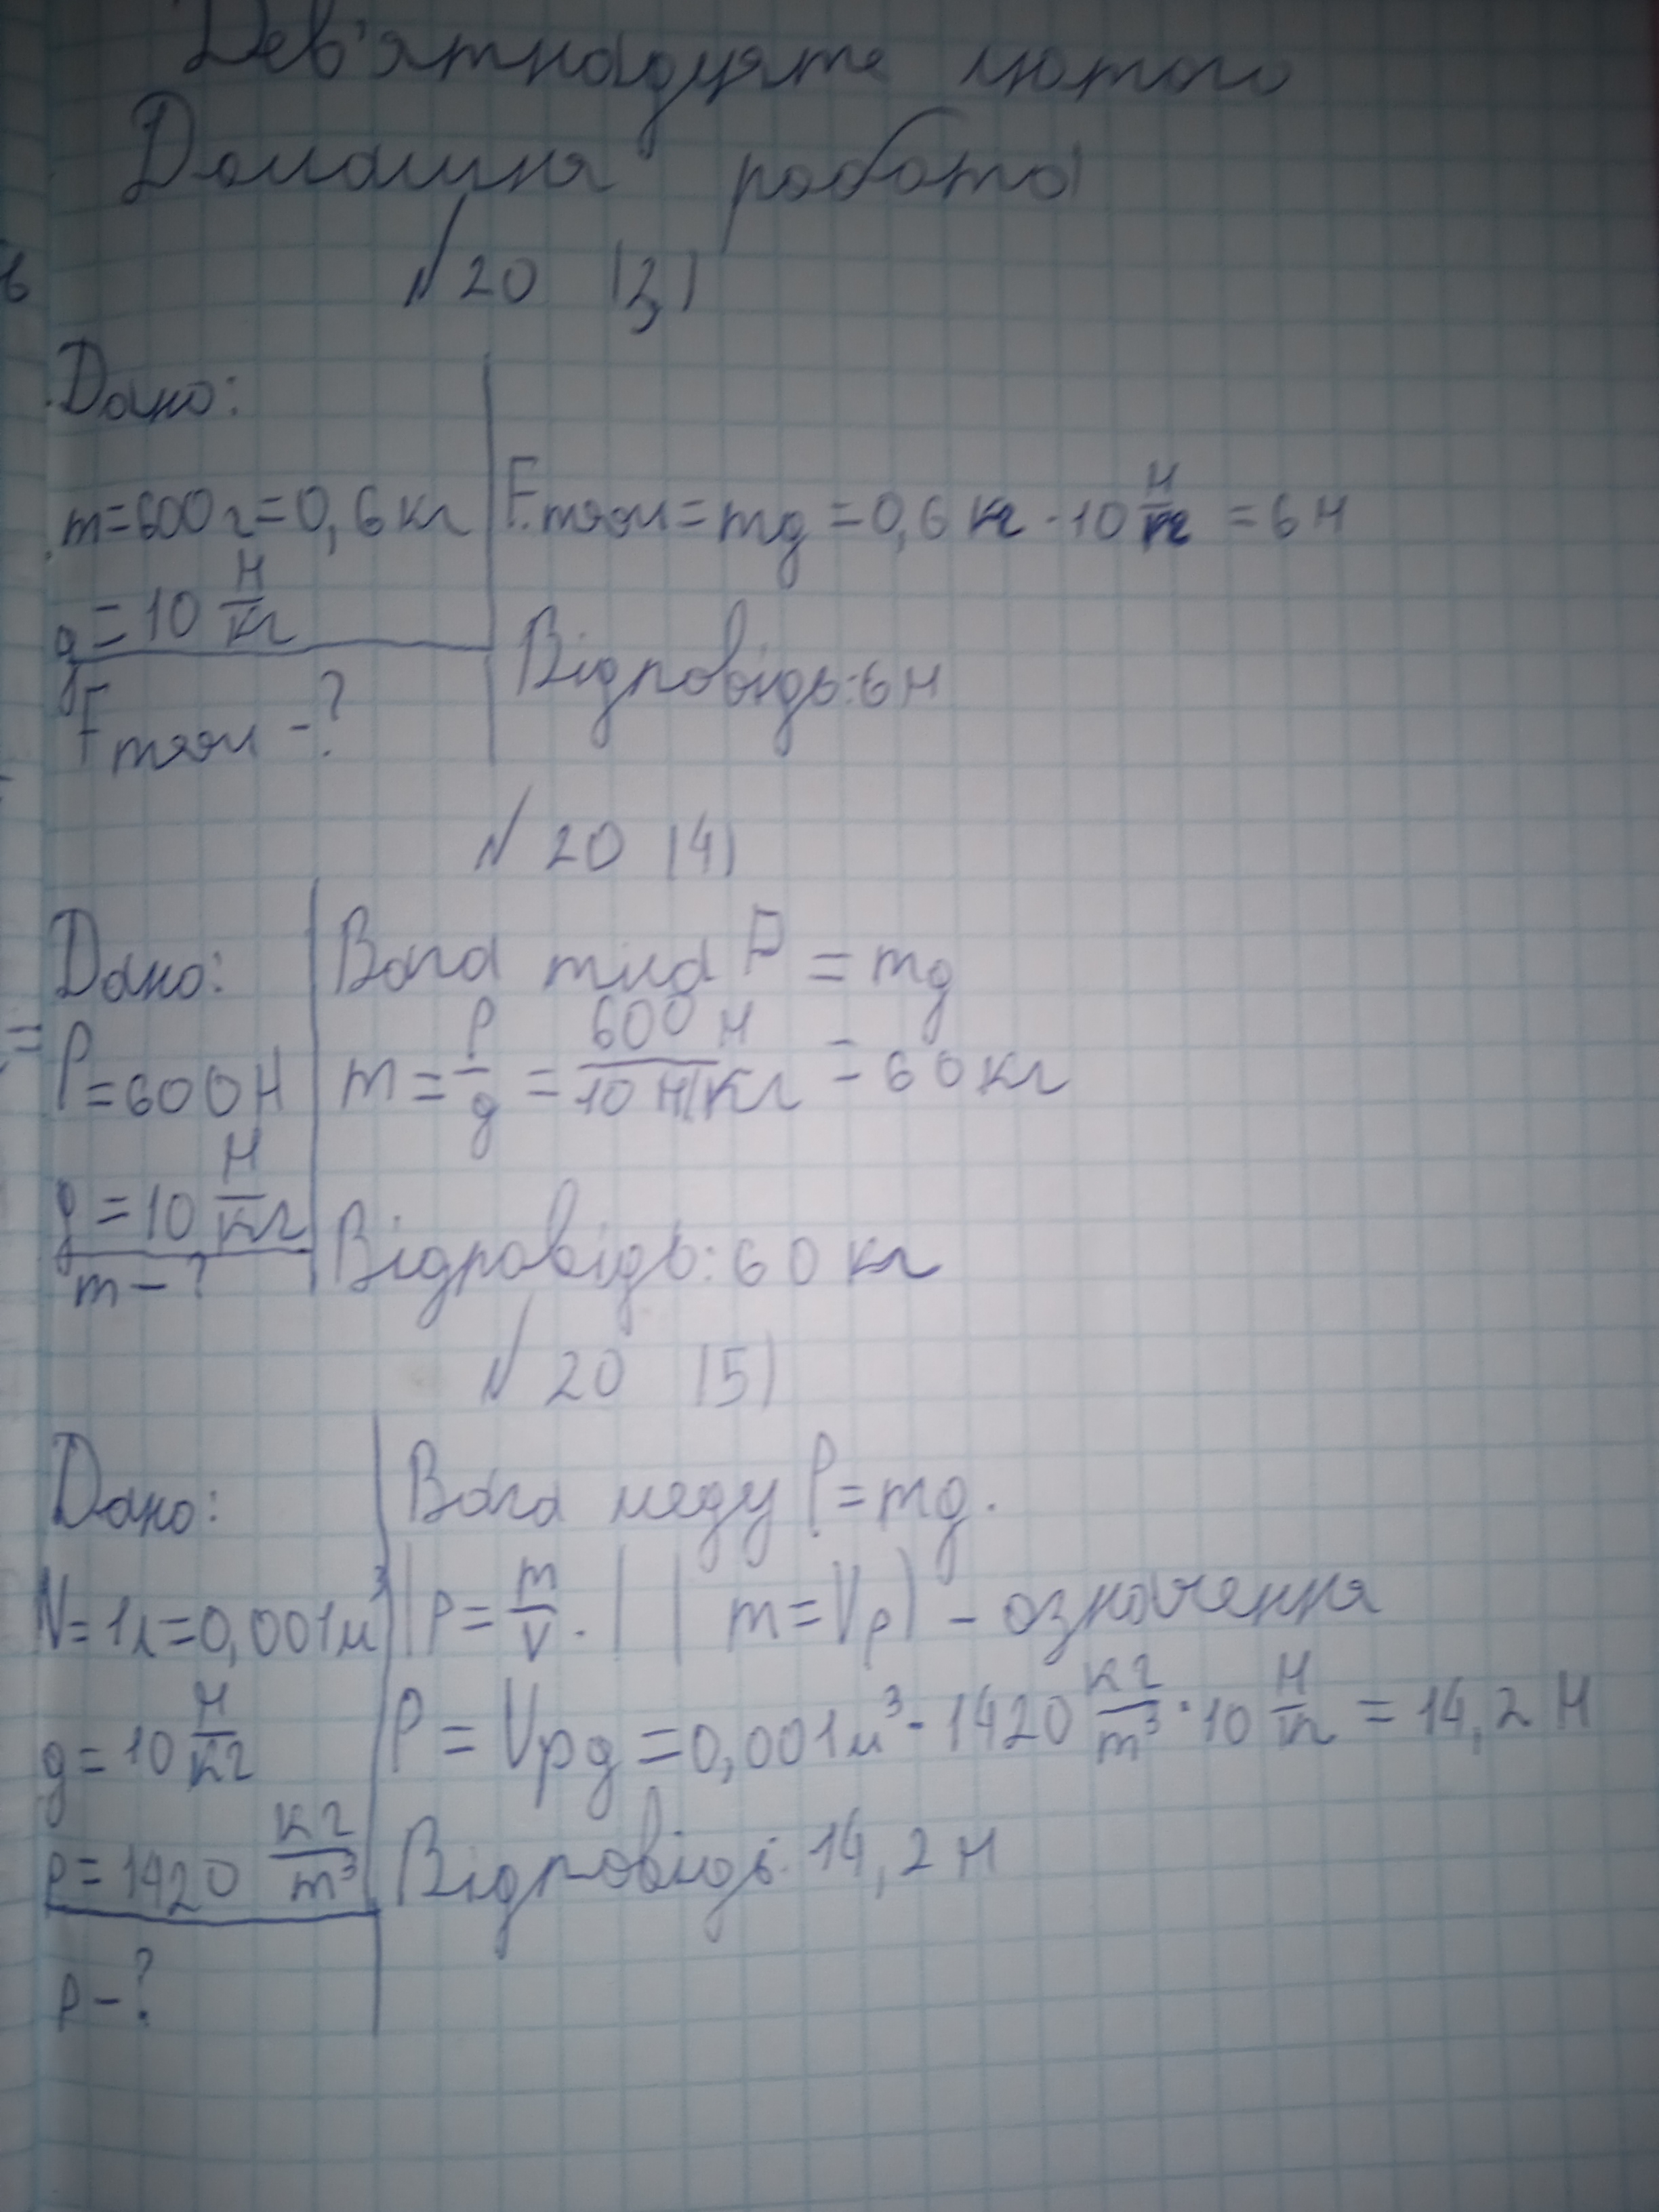 Дев'ятнадцяте лютого
Домашня робота
№20 (3)
Дано:
m=600г=0,6 кг
g=10 Н/кг
Fтяж -?
Fтяж=mg=0,6 кг·10 Н/кг=6 Н
Відповідь: 6 Н
№ 20 (4)
Дано:
P=600Н
g=10 Н/кг
m-?
Вага тіла P=mg
m=P/g=600 Н/10 Н/кг=60 кг
Відповідь: 60 кг
№ 20 (5)
Дано:
V=1л=0,001м³
g=10 Н/кг
ρ=1420 кг/m³
P-?
Вага меду P=mg.
|ρ=m/V.| |m=Vρ| - означення
P=Vρg=0,001м³·1420 кг/m³·10 Н/кг=14,2 Н
Відповідь: 14,2 Н